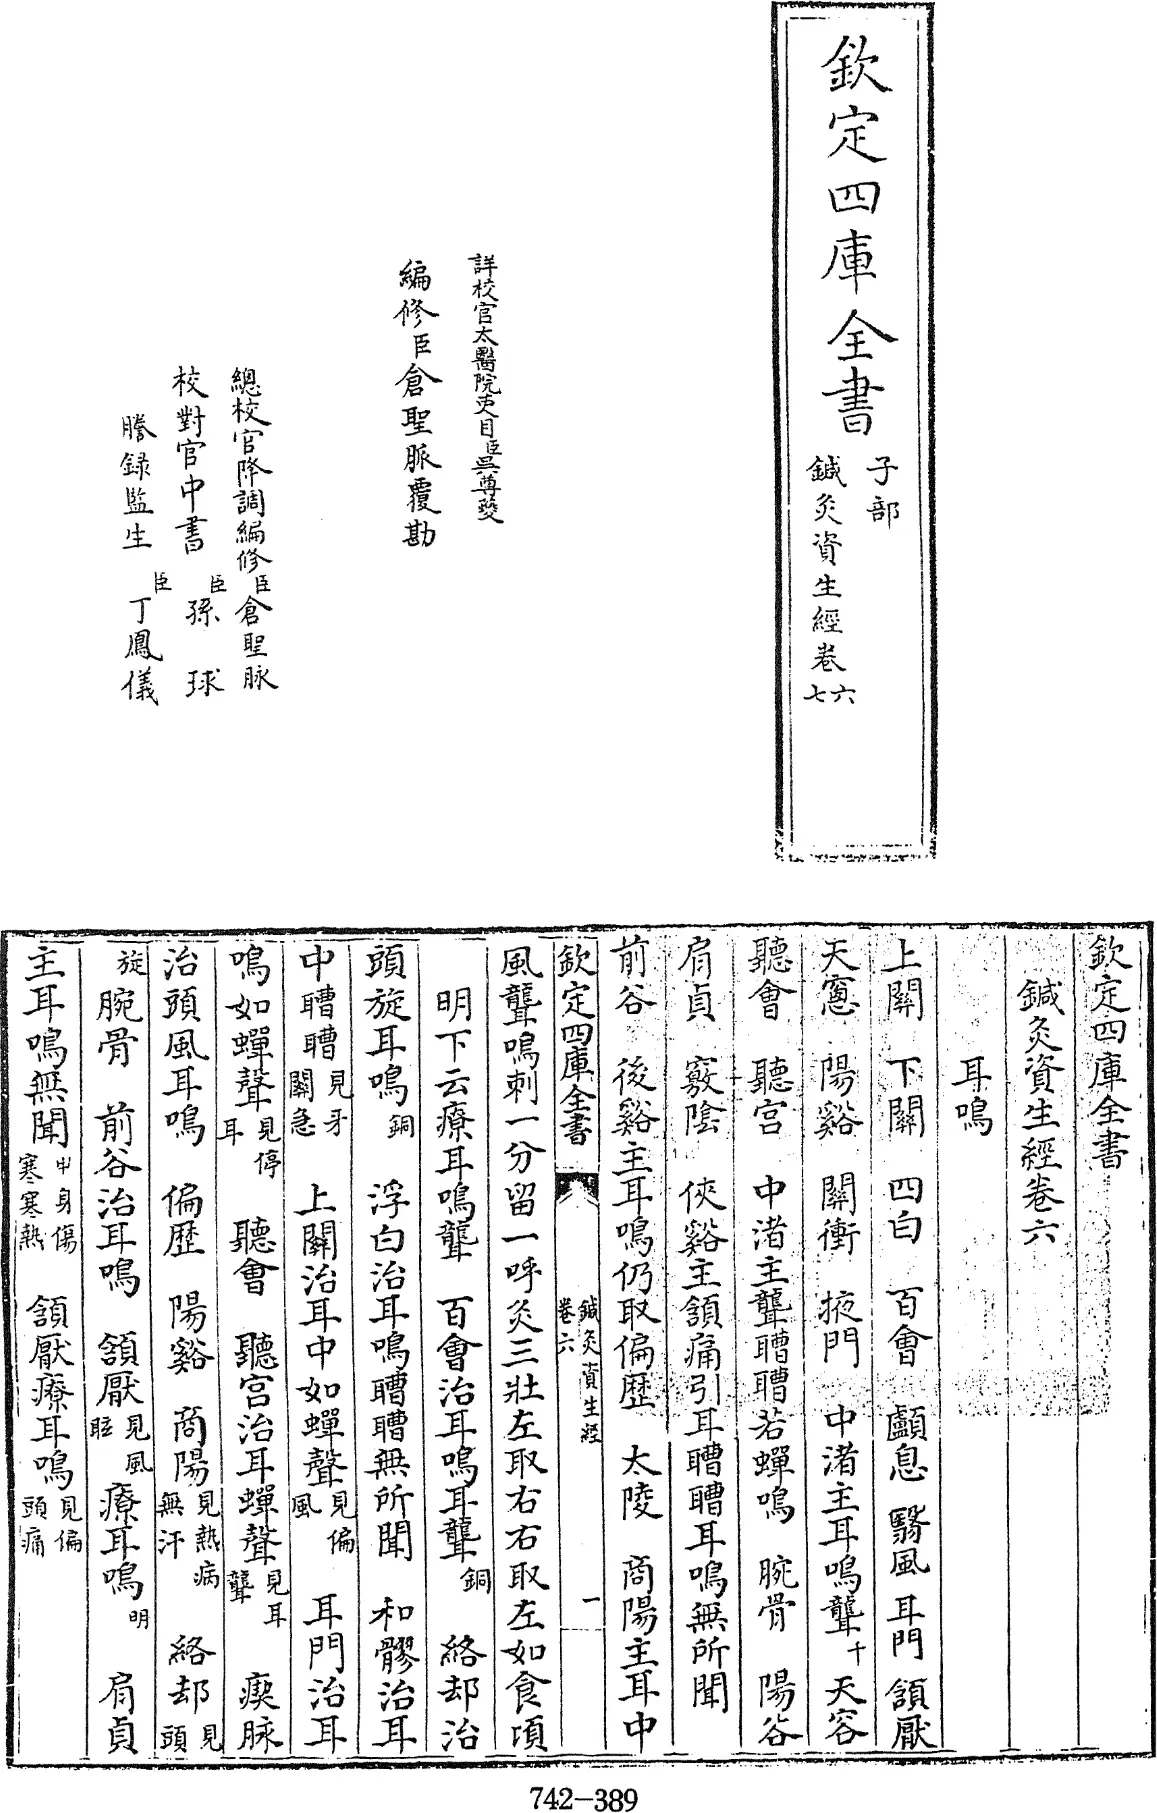 欽定四庫全書
子部
鍼灸資生經卷六七
詳校官太醫院吏目臣吳尊夔
編修臣倉聖脈覆勘
總校官降調編修臣倉聖脈
校對官中書臣孫球
謄錄監生臣丁鳳儀
欽定四庫全書
鍼灸資生經卷六
耳鳴
上關 下關 四白 百會 顱息 翳風 耳門 頷厭
天窻 陽谿 關衝 掖門 中渚主耳鳴聾千 天容
聽會 聽宫 中渚主聾嘈嘈若蟬鳴 腕骨 陽谷
肩貞 竅陰 俠谿主頷痛引耳嘈嘈耳鳴無所聞
前谷 後谿主耳鳴仍取偏歷 太陵 商陽主耳中
欽定四庫全書 鍼灸資生經 卷六 一
風聾鳴刺一分留一呼灸三壯左取右右取左如食頃
明下云療耳鳴聾 百會治耳鳴耳聾銅 絡却治
頭旋耳鳴銅 浮白治耳鳴嘈嘈無所聞 和髎治耳
中嘈嘈見牙關急 上關治耳中如蟬聲見偏風 耳門治耳
鳴如蟬聲見停耳 聽會 聽宫治耳蟬聲見耳聾 瘈脉
治頭風耳鳴 偏歷 陽谿 商陽見熱病無汗 絡却見頭
旋 腕骨 前谷治耳鳴 頷厭見風眩 療耳鳴明 肩貞
主耳鳴無聞中身傷寒寒熱 頷厭療耳鳴見偏頭痛
742-389